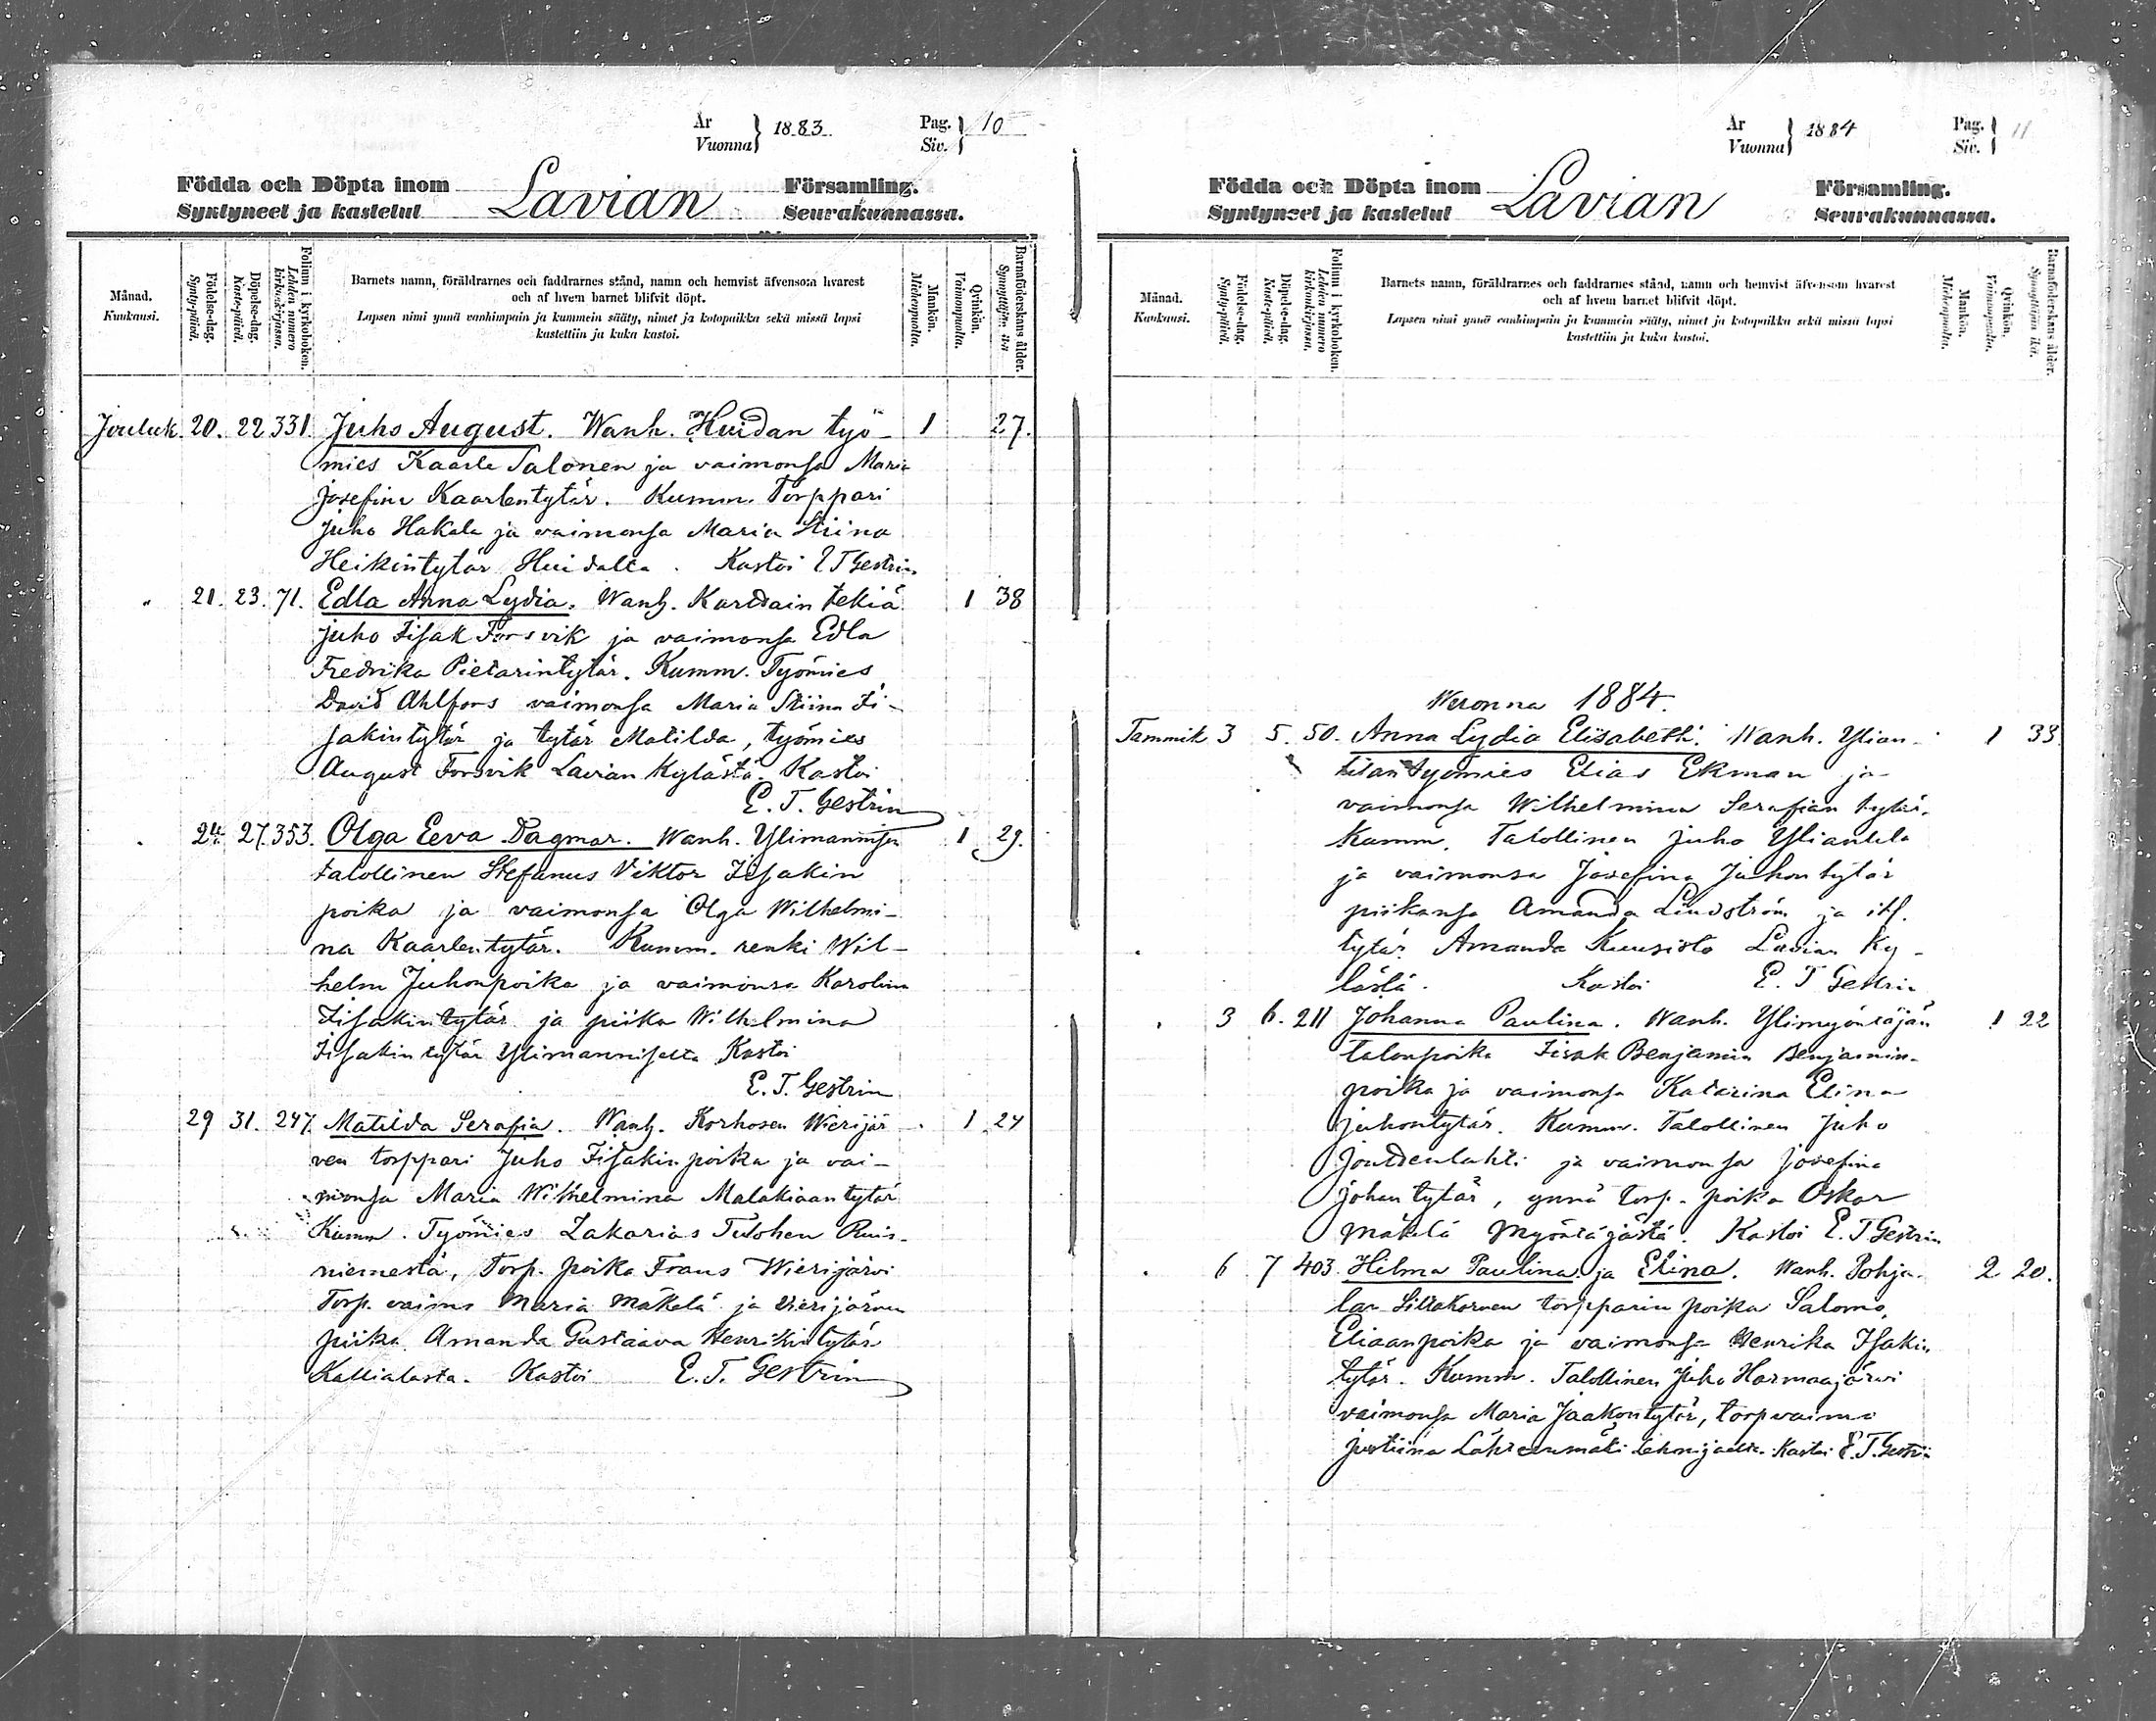 År
Vuonna } 1883. Pag.
Siv. } 10
Födda och Döpta inom
Syntyneet ja kastetut Lavian Församling.
Seurakunnassa.
Månad.
Kuukausi.
Födelse-dag.
Syntypäivä.
Döpelse-dag.
Kastepäivä.
Folium i kyrkoboken.
Lehden numero
kirkonkirjassa.
Barnets namn, föräldrarnes och faddrarnes stånd, namn och hemvist äfvensom hvarest
och af hvem barnet blifvit döpt.
Lapsen nimi ynnä vanhimpain ja kummein sääty, nimet ja kotopaikka sekä missä lapsi
kastettiin ja kuka kastoi.
Mankön.
Miehenpuolta.
Qvinkön.
Vaimonpuolta.
Barnaföderskans ålder.
Synnyttäjän ikä
Jouluk. 20. 22 331. Juho August. Wanh. Huidan työ- 1 27.
mies Kaarle Salonen ja vaimonsa Maria
Josefina Kaarlentytär. Kumm. Torppari
Juho Hakala ja vaimonsa Maria Stiina
Heikintytär Huidalta. Kastoi E T Gestrin
" 21. 23. 71. Edla Anna Lydia. Wanh. Kardain tekiä 1 38
Juho Iisak Forsvik ja vaimonsa Edla
Fredrika Pietarintytär. Kumm. Työmies
David Ahlfors vaimonsa Maria Stiina Ii-
sakintytär ja tytär Matilda, työmies
August Forsvik Lavian Kylästä. Kastoi
E. T. Gestrin
24. 27. 353. Olga Eeva Dagmar. Wanh. Ylimannisen 1 29.
talollinen Stefanus Viktor Iisakin
poika ja vaimonsa Olga Wilhelmi-
na Kaarlentytär. Kumm. renki Wil-
helm Juhonpoika ja vaimonsa Karolina
Iisakintytär ja piika Wilhelmina
Iisakintytär Ylimanniselta Kastoi
E. T. Gestrin
29 31. 247. Matilda Serafia. Wanh. Korhosen Wierijär- 1 24
ven torppari Juho Iisakinpoika ja vai-
monsa Maria Wilhelmina Malakiaantytär
Kumm. Työmies Zakarias Tulohen Ruis-
niemestä, Torp. poika Frans Wierijärvi
Torp. vaimo Maria Mäkelä ja Wierijärven
piika Amanda Gustaava Henrikintytär
Kallialasta. Kastoi E. T. Gestrin
År
Vuonna } 1884 Pag.
Siv. } 11
Födda och Döpta inom
Syntyneet ja kastetut Lavian Församling.
Seurakunnassa.
Månad.
Kuukausi.
Födelse-dag.
Syntypäivä.
Döpelse-dag.
Kastepäivä.
Folium i kyrkoboken.
Lehden numero
kirkonkirjassa.
Barnets namn, föräldrarnes och faddrarnes stånd, namn och hemvist äfvensom hvarest
och af hvem barnet blifvit döpt.
Lapsen nimi ynnä vanhimpain ja kummein sääty, nimet ja kotopaikka sekä missä lapsi
kastettiin ja kuka kastoi.
Mankön.
Miehenpuolta.
Qvinkön.
Vaimonpuolta.
Barnaföderskans ålder.
Synnyttäjän ikä.
Wuonna 1884.
Tammik 3 5. 50. Anna Lydia Elisabeth. Wanh. Ylian- 1 33
tilan työmies Elias Ekman ja
vaimonsa Wilhelmina Serafian tytär.
Kumm. Talollinen Juho Yliantila
ja vaimonsa Josefina Juhontytär
piikansa Amanda Lindström ja itl.
tytär Amanda Kuusisto Lavian Ky-
lästä. Kastoi E. T Gestrin
3 6. 211 Johanna Paulina. Wanh. Ylimyöntäjän 1 22
talonpoika Iisak Benjamin Benjamin-
poika ja vaimonsa Katarina Elina
Juhontytär. Kumm. Talollinen Juho
Joutdenlahti ja vaimonsa Josefina
Johantytär, ynnä torp. poika Oskar
Mäkelä Myöntäjästä. Kastoi E. T Gestrin
6 7 403. Hilma Paulina ja Elina. Wanh. Pohja- 2 20.
lan Siltakorven torpparin poika Salomo
Eliaanpoika ja vaimonsa Henrika Isakin
tytär. Kumm. Talollinen Juho Harmaajärvi
vaimonsa Maria Jaakontytär, torpvaimo
Justiina Lähteenmäki Kastoi E. T. Gestrin